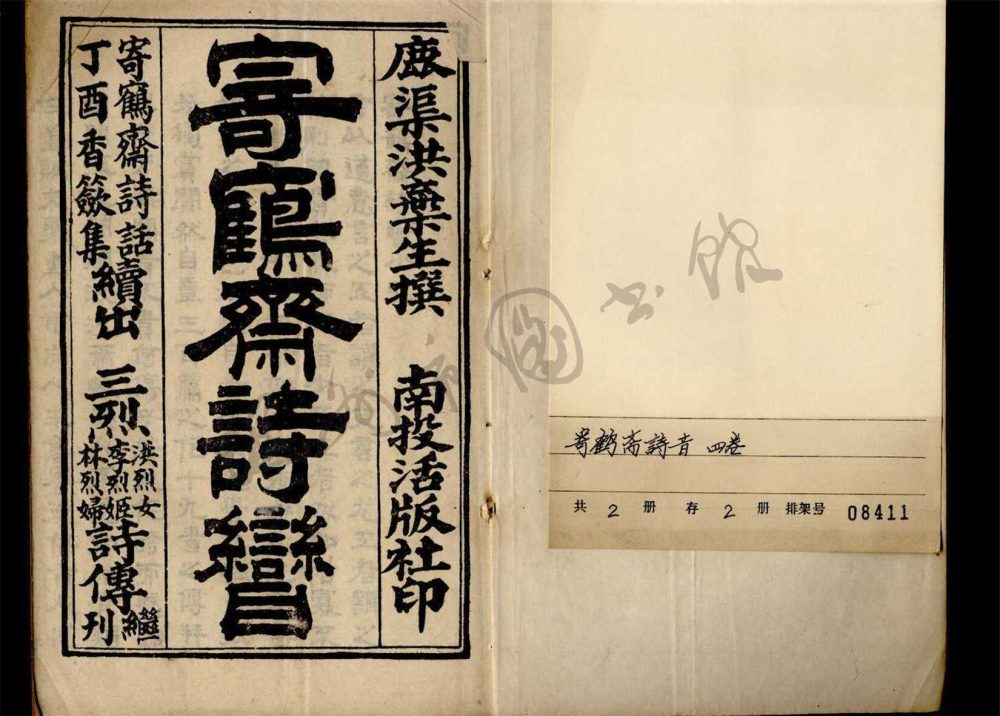 鹿渠洪棄生撰 南投活版社印
寄鶴齋詩矕
寄鶴齋詩話
丁酉香籢集
續出
三烈
洪烈女
李烈姬
林烈婦
詩傳
繼刊
寄鹤斋詩昔 四卷
共 2 册 存 2 册 排架号 08411